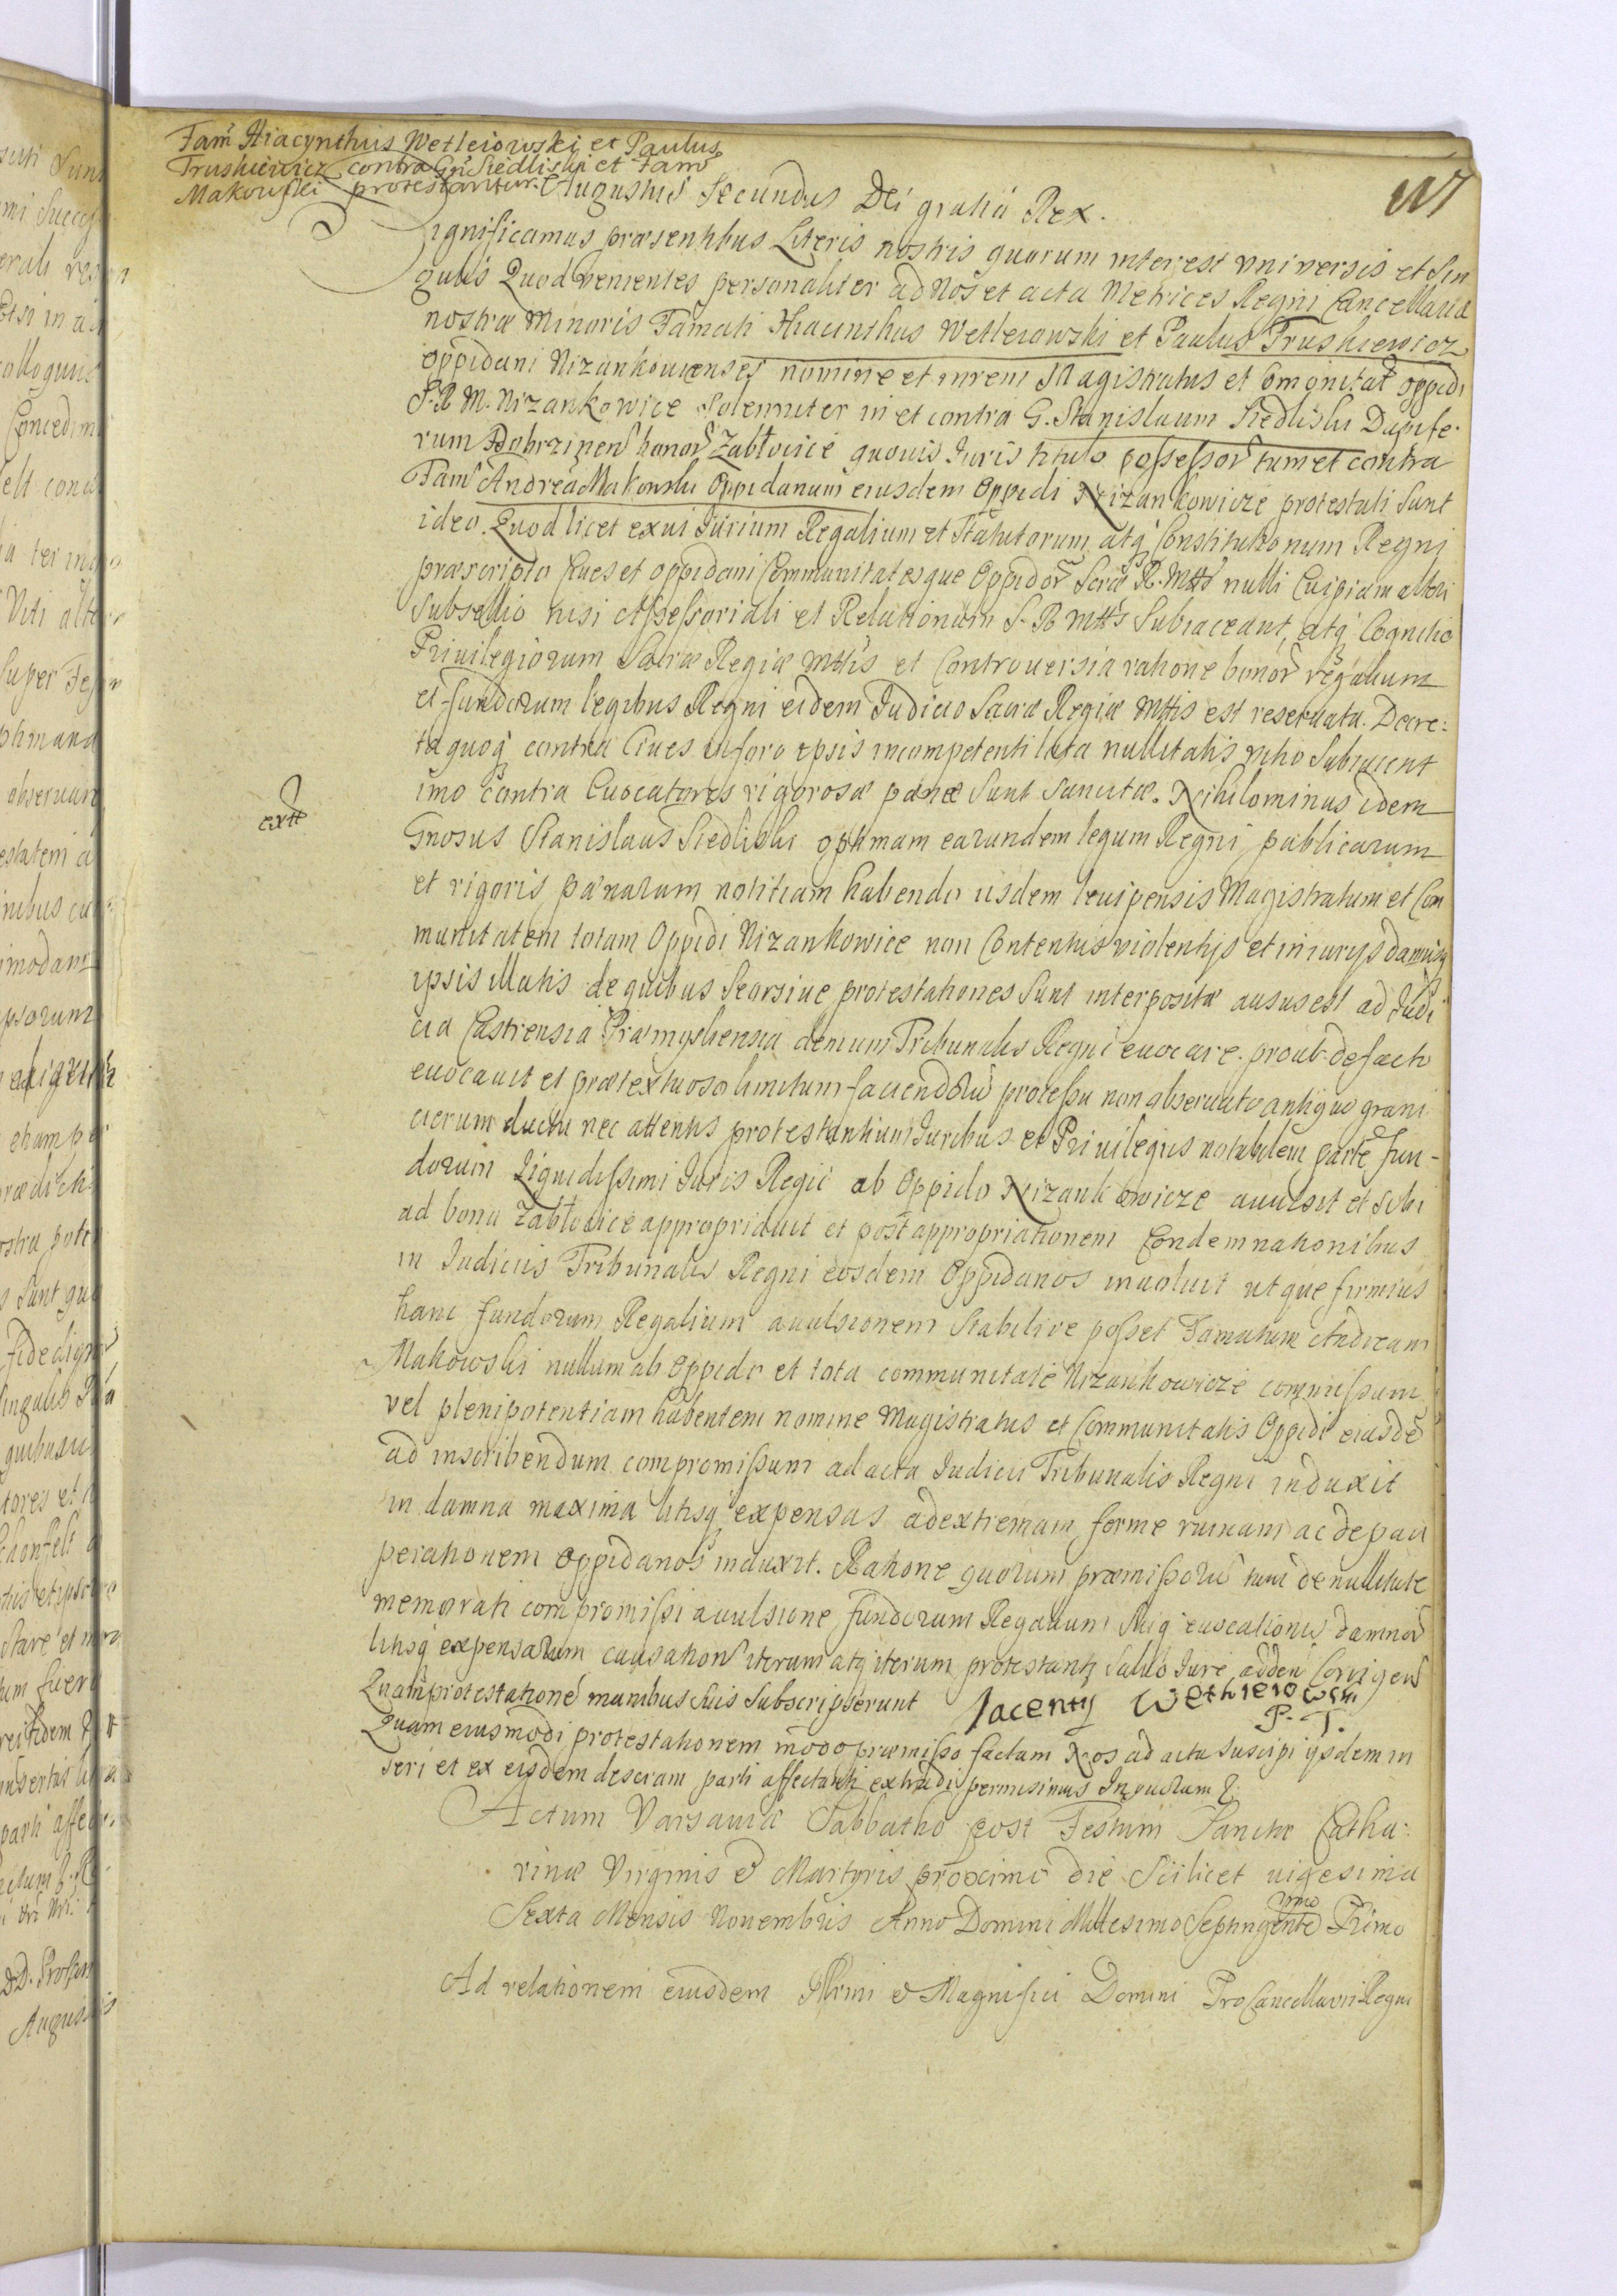 Fam̃ Hiacynthus Wetleiowski et Paulus
Trushiewicz contra Gñ Siedliski et Fam̃
Makowski protestantur.
Augustus Secundus Dei gratia Rex.
Significamus præsentibus Literis nostris quorum interest vniversis et Sin
gulis Quod venientes personaliter ad Nos et acta Metrices Regni Cancellariæ
nostræ Minoris Famati Hiacinthus Wetleiowski et Paulus Trushiewicz
oppidani Nizankouienses nomine et in rem Magistratus et Comonitat̃ oppidi
S. R. M. Nizankowice Solenniter in et contra G. Stanislaum Siedliski Dapife-
rum Dobrzinen̄ honor̄ Zabłocice quouis Iuris titulo possessor̄ tum et contra
Fam̄ Andrea Makowski Oppidanum eiusdem Oppidi Nizankowicze protestati Sunt
ideo. Quod licet ex ui Iurium Regalium et Statutorum atq; Constitutionum Regni
præscripto Ciues et oppidani Communitatesque Oppidor̄ Scræ R. Mttis nulli Cuipiam alteri
Subsellio nisi Assessoriali et Relationum S. R. Mttis Subiaceant, atq; Cognitio
Priuilegiorum Sacræ Regiæ Mttis et Controuersia ratione bonor̄ regalium
et fundorum legibus Regni eidem Iudicio Sacræ Regiæ Mttis est reseruata. Decre:
ta quoq; contra Ciues in foro ipsis incompetenti lata nullitatis vitio Subiacent
imo contra Euocatores rigorosæ pænæ Sunt Sancitæ. Nihilominus idem
extt
Gnosus Stanislaus Siedliski optimam earundem legum Regni publicarum
et rigoris pænarum notitiam habendo iisdem leuipensis Magistratum et Com
munitatem totam Oppidi Nizankowice non Contentus violentijs et iniurijs damnisq;
ipsis illatis de quibus Seorsiue protestationes Sunt interpositæ ausus est ad Iudi
cia Castrensia Præmysliensia demum Tribunalis Regni euocare. prout de facto
euocauit et prætextuoso limitum faciendorū processu non obseruato antiquo grani
cierum ductu nec attentis protestantium Iuribus et Priuilegijs notabilem partē fun-
dorum Liquidissimi Iuris Regii ab Oppido Nizankowicze auulsit et Sibi
ad bona Zabłocice appropriauit et post appropriationem Condemnationibus
in Iudiciis Tribunalis Regni eosdem Oppidanos inuoluit utque firmius
hanc fundorum Regalium auulsionem Stabilire posset Famatum Andream
Makowski nullum ab Oppido et tota communitate Nizankowicze commissum
vel plenipotentiam habentem nomine Magistratus et Communitatis Oppidi eiusdē
ad inscribendum compromissum ad acta Iudicii Tribunalis Regni induxit
in damna maxima litisq; expensas ad extremam ferme ruinam ac depau
perationem oppidanos induxit. Ratione quorum præmissorū tum de nullitate
memorati compromissi auulsione fundorum Regalium Suiq; euocationis damnor̄
litisq; expensarum causation̄ iterum atq; iterum protestanti Saluo Iure adden̄ Corrigen̄
Quam protestationē manibus Suis Subscripserunt Jacenty Wethlerowski
P. T.
Quam eiusmodi protestationem modo præmisso factam Nos ad acta suscipi ijsdem in
seri et ex eisdem descram parti affectanti extradi permisimus In cuius rei
Actum Varsauiæ Sabbatho post Festum Sanctæ Catha:
rinæ Virginis & Martyris proximo die Scilicet uigesima
Sexta Mensis Nouembris Anno Domini Millesimo Septingentesimo Primo
Ad relationem eiusdem Illrmi & Magnifici Domini ProCancellarii Regni